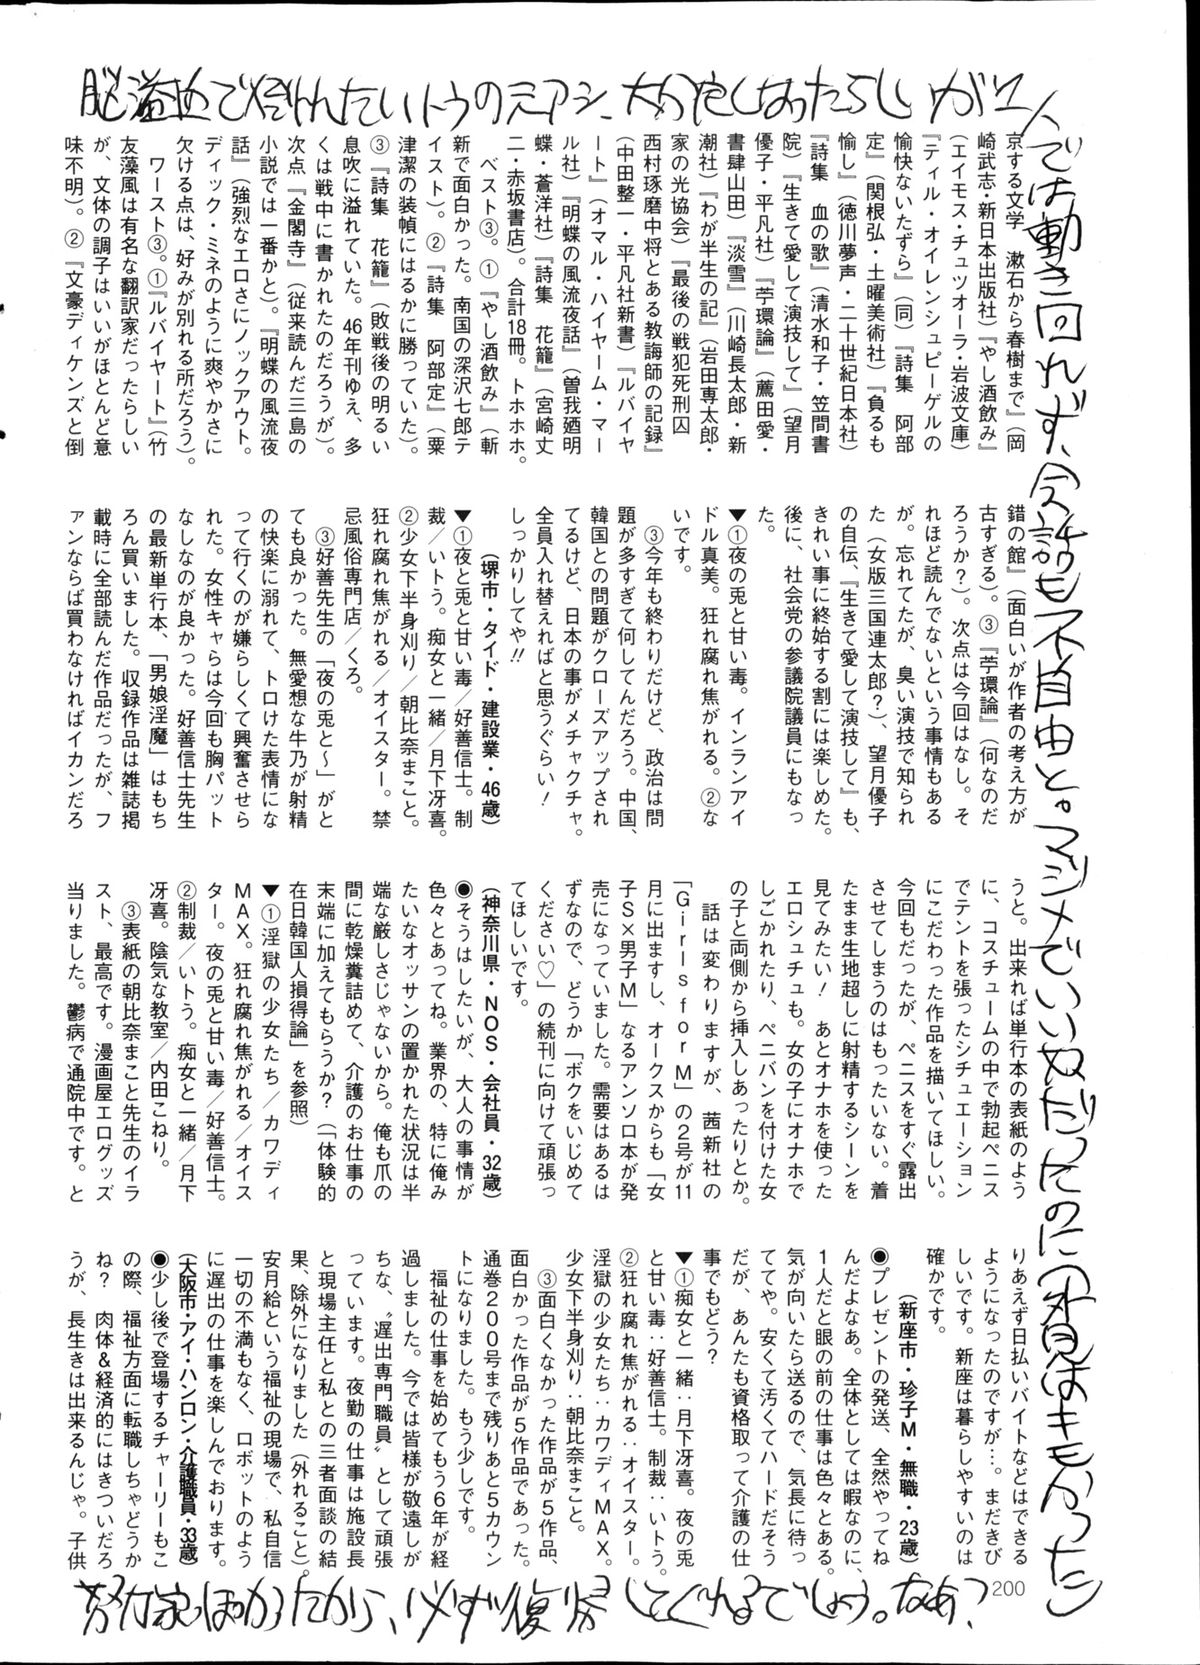 脳溢血で倒れたいトウの元アシ、大分良くなったらしいが1人
では動き回れず、会話も不自由と。マジメでいい奴だったのに
努力家ぽかったから、必ず復帰してくれるでしょう。なあ?
京する文学 漱石から春樹まで』(岡
崎武志・新日本出版社)『やし酒飲み』
(エイモス・チュツオーラ・岩波文庫)
『ティル・オイレンシュピーゲルの
愉快ないたずら』(同)『詩集 阿部
定』(関根弘・土曜美術社)『負るも
愉し』(徳川夢声・二十世紀日本社)
『詩集 血の歌』(清水和子・笠間書
院)『生きて愛して演技して』(望月
優子・平凡社)『苧環論』(薦田愛・
書肆山田)『淡雪』(川崎長太郎・新
潮社)『わが半生の記』(岩田専太郎・
家の光協会)『最後の戦犯死刑囚
西村琢磨中将とある教誨師の記録』
(中田整一・平凡社新書)『ルバイヤ
ート』(オマル・ハイヤーム・マー
ル社)『明蝶の風流夜話』(曽我廼明
蝶・蒼洋社)『詩集 花籠』(宮崎丈
二・赤坂書店)。合計18冊。トホホホ。
ベスト③。①『やし酒飲み』(斬
新で面白かった。南国の深沢七郎テ
イスト)。②『詩集 阿部定』(粟
津潔の装幀にはるかに勝っていた)。
③『詩集 花籠』(敗戦後の明るい
息吹に溢れていた。46年刊ゆえ、多
くは戦中に書かれたのだろうが)。
次点『金閣寺』(従来読んだ三島の
小説では一番かと)。『明蝶の風流夜
話』(強烈なエロさにノックアウト。
ディック・ミネのように爽やかさに
欠ける点は、好みが別れる所だろう)。
ワースト③。①『ルバイヤート』(竹
友藻風は有名な翻訳家だったらしい
が、文体の調子はいいがほとんど意
味不明)。②『文豪ディケンズと倒
錯の館』(面白いが作者の考え方が
古すぎる)。③『苧環論』(何なのだ
ろうか?)。次点は今回はなし。そ
れほど読んでないという事情もある
が。忘れてたが、臭い演技で知られ
た(女版三国連太郎?)、望月優子
の自伝、『生きて愛して演技して』も、
きれい事に終始する割には楽しめた。
後に、社会党の参議院議員にもなっ
た。
▼①夜の兎と甘い毒。インランアイ
ドル真美。狂れ腐れ焦がれる。②な
いです。
③今年も終わりだけど、政治は問
題が多すぎて何してんだろう。中国、
韓国との問題がクローズアップされ
てるけど、日本の事がメチャクチャ。
全員入れ替えれればと思うぐらい!
しっかりしてや!!
(堺市・タイド・建設業・46歳)
▼①夜と兎と甘い毒/好善信士。制
裁/いトう。痴女と一緒/月下冴喜。
②少女下半身刈り/朝比奈まこと。
狂れ腐れ焦がれる/オイスター。禁
忌風俗専門店/くろ。
③好善先生の「夜の兎と〜」がと
ても良かった。無愛想な牛乃が射精
の快楽に溺れて、トロけた表情にな
って行くのが嫌らしくて興奮させら
れた。女性キャラは今回も胸パット
なしなのが良かった。好善信士先生
の最新単行本、「男娘淫魔」はもち
ろん買いました。収録作品は雑誌掲
載時に全部読んだ作品だったが、フ
ァンならば買わなければイカンだろ
うと。出来れば単行本の表紙のよう
に、コスチュームの中で勃起ペニス
でテントを張ったシチュエーション
にこだわった作品を描いてほしい。
今回もだったが、ペニスをすぐ露出
させてしまうのはもったいない。着
たまま生地超しに射精するシーンを
見てみたい! あとオナホを使った
エロシュチュも。女の子にオナホで
しごかれたり、ペニバンを付けた女
の子と両側から挿入しあったりとか。
話は変わりますが、茜新社の
「Girls forM」の2号が11
月に出ますし、オークスからも「女
子S×男子M」なるアンソロ本が発
売になっていました。需要はあるは
ずなので、どうか「ボクをいじめて
ください♡」の続刊に向けて頑張っ
てほしいです。
(神奈川県・NOS・会社員・32歳)
◉そうはしたいが、大人の事情が
色々とあってね。業界の、特に俺み
たいなオッサンの置かれた状況は半
端な厳しさじゃないから。俺も爪の
間に乾燥糞詰めて、介護のお仕事の
末端に加えてもらうか?(「体験的
在日韓国人損得論」を参照)
▼①淫獄の少女たち/カワディ
MAX。狂れ腐れ焦がれる/オイス
ター。夜の兎と甘い毒/好善信士。
②制裁/いトう。痴女と一緒/月下
冴喜。陰気な教室/内田こねり。
③表紙の朝比奈まこと先生のイラ
スト、最高です。漫画屋エログッズ
当りました。鬱病で通院中です。と
りあえず日払いバイトなどはできる
ようになったのですが…。まだきび
しいです。新座は暮らしやすいのは
確かです。
(新座市・珍子M・無職・23歳)
◉プレゼントの発送、全然やってね
んだよなあ。全体としては暇なのに、
1人だと眼の前の仕事は色々とある。
気が向いたら送るので、気長に待っ
ててや。安くて汚くてハードだそう
だが、あんたも資格取って介護の仕
事でもどう?
▼①痴女と一緒‥月下冴喜。夜の兎
と甘い毒‥好善信士。制裁‥いトう。
②狂れ腐れ焦がれる‥オイスター。
淫獄の少女たち‥カワディMAX。
少女下半身刈り‥朝比奈まこと。
③面白くなかった作品が5作品、
面白かった作品が5作品であった。
通巻200号まで残りあと5カウン
トになりました。もう少しです。
福祉の仕事を始めてもう6年が経
過しました。今では皆様が敬遠しが
ちな、〝遅出専門職員〟として頑張
っています。夜勤の仕事は施設長
と現場主任と私との三者面談の結
果、除外になりました(外れること)。
安月給という福祉の現場で、私自信
一切の不満もなく、ロボットのよう
に遅出の仕事を楽しんでおります。
(大阪市・アイ・ハンロン・介護職員・33歳)
◉少し後で登場するチャーリーもこ
の際、福祉方面に転職しちゃどうか
ね? 肉体&経済的にはきついだろ
うが、長生きは出来るんじゃ。子供
200